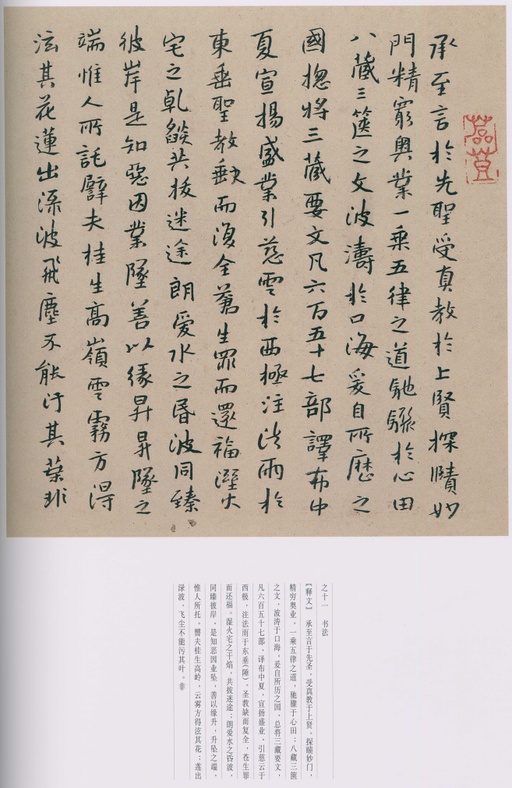 承至言於先聖受真教於上賢探賾妙
門精窮奧業一乘五律之道馳驟於心田
八藏三篋之文波濤於口海爰自所歷之
國揔將三藏要文凡六百五十七部譯布中
夏宣揚盛業引慈雲於西極注法雨於
東垂聖教缺而復全蒼生罪而還福濕火
宅之乹燄共拔迷途朗愛水之昏波同臻
彼岸是知惡因業墜善以緣昇昇墜之
端惟人所託譬夫桂生高嶺雲霧方得
泫其花蓮出淥波飛塵不能汙其葉非
之十一 书法
【释文】承至言于先圣,受真教于上贤,探赜妙门,
精穷奥业,一乘五律之道,驰骤于心田;八藏三箧
之文,波涛于口海。爰自所历之国,总将三藏要文,
凡六百五十七部,译布中夏,宣扬盛业,引慈云于
西极,注法雨于东垂(陲),圣教缺而复全,苍生罪
而还福,湿火宅之干焰,共拔迷途;朗爱水之昏波,
同臻彼岸。是知恶因业坠,善以缘升,升坠之端,
惟人所托。譬夫桂生高岭,云雾方得泫其花;莲出
渌波,飞尘不能污其叶。非